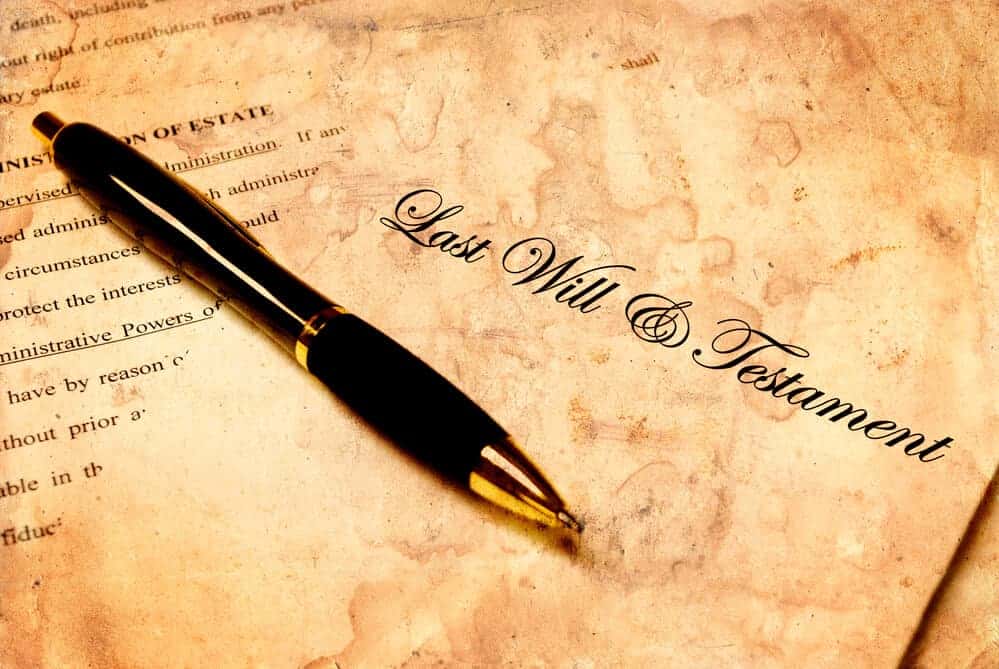 death, including
out right of contribution from any per
ary estate
shall
INIS ON OF ESTATE
pervised ministration. If any
sed adminis h administra
circumstances ould
protect the interests
ministrative Powers of
have by reason o
ithout prior a
able in th
fiduc
Last Will & Testament